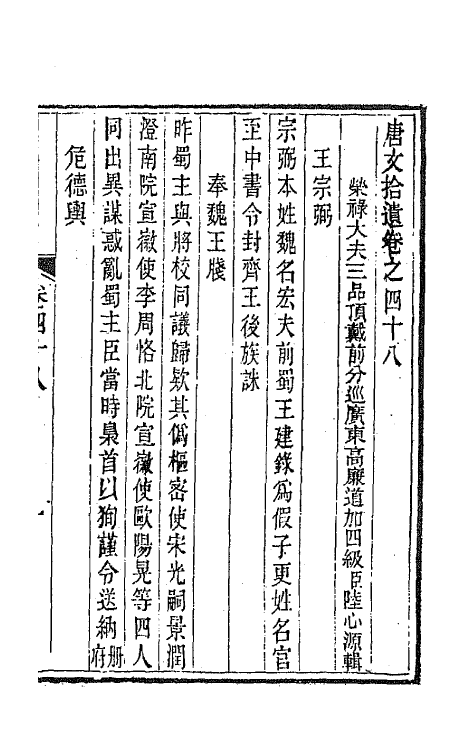 唐文拾遺卷之四十八
榮祿大夫三品頂戴前分巡廣東高廉道加四級臣陸心源輯
王宗弼
宗弼本姓魏名宏夫前蜀王建錄爲假子更姓名官
至中書令封齊王後族誅
奉魏王牋
昨蜀主與將校同議歸欵其僞樞密使宋光嗣景潤
澄南院宣徽使李周輅北院宣徽使歐陽晃等四人
同出異謀惑亂蜀主臣當時梟首以狥謹令送納冊府
危德輿
卷四十八
一